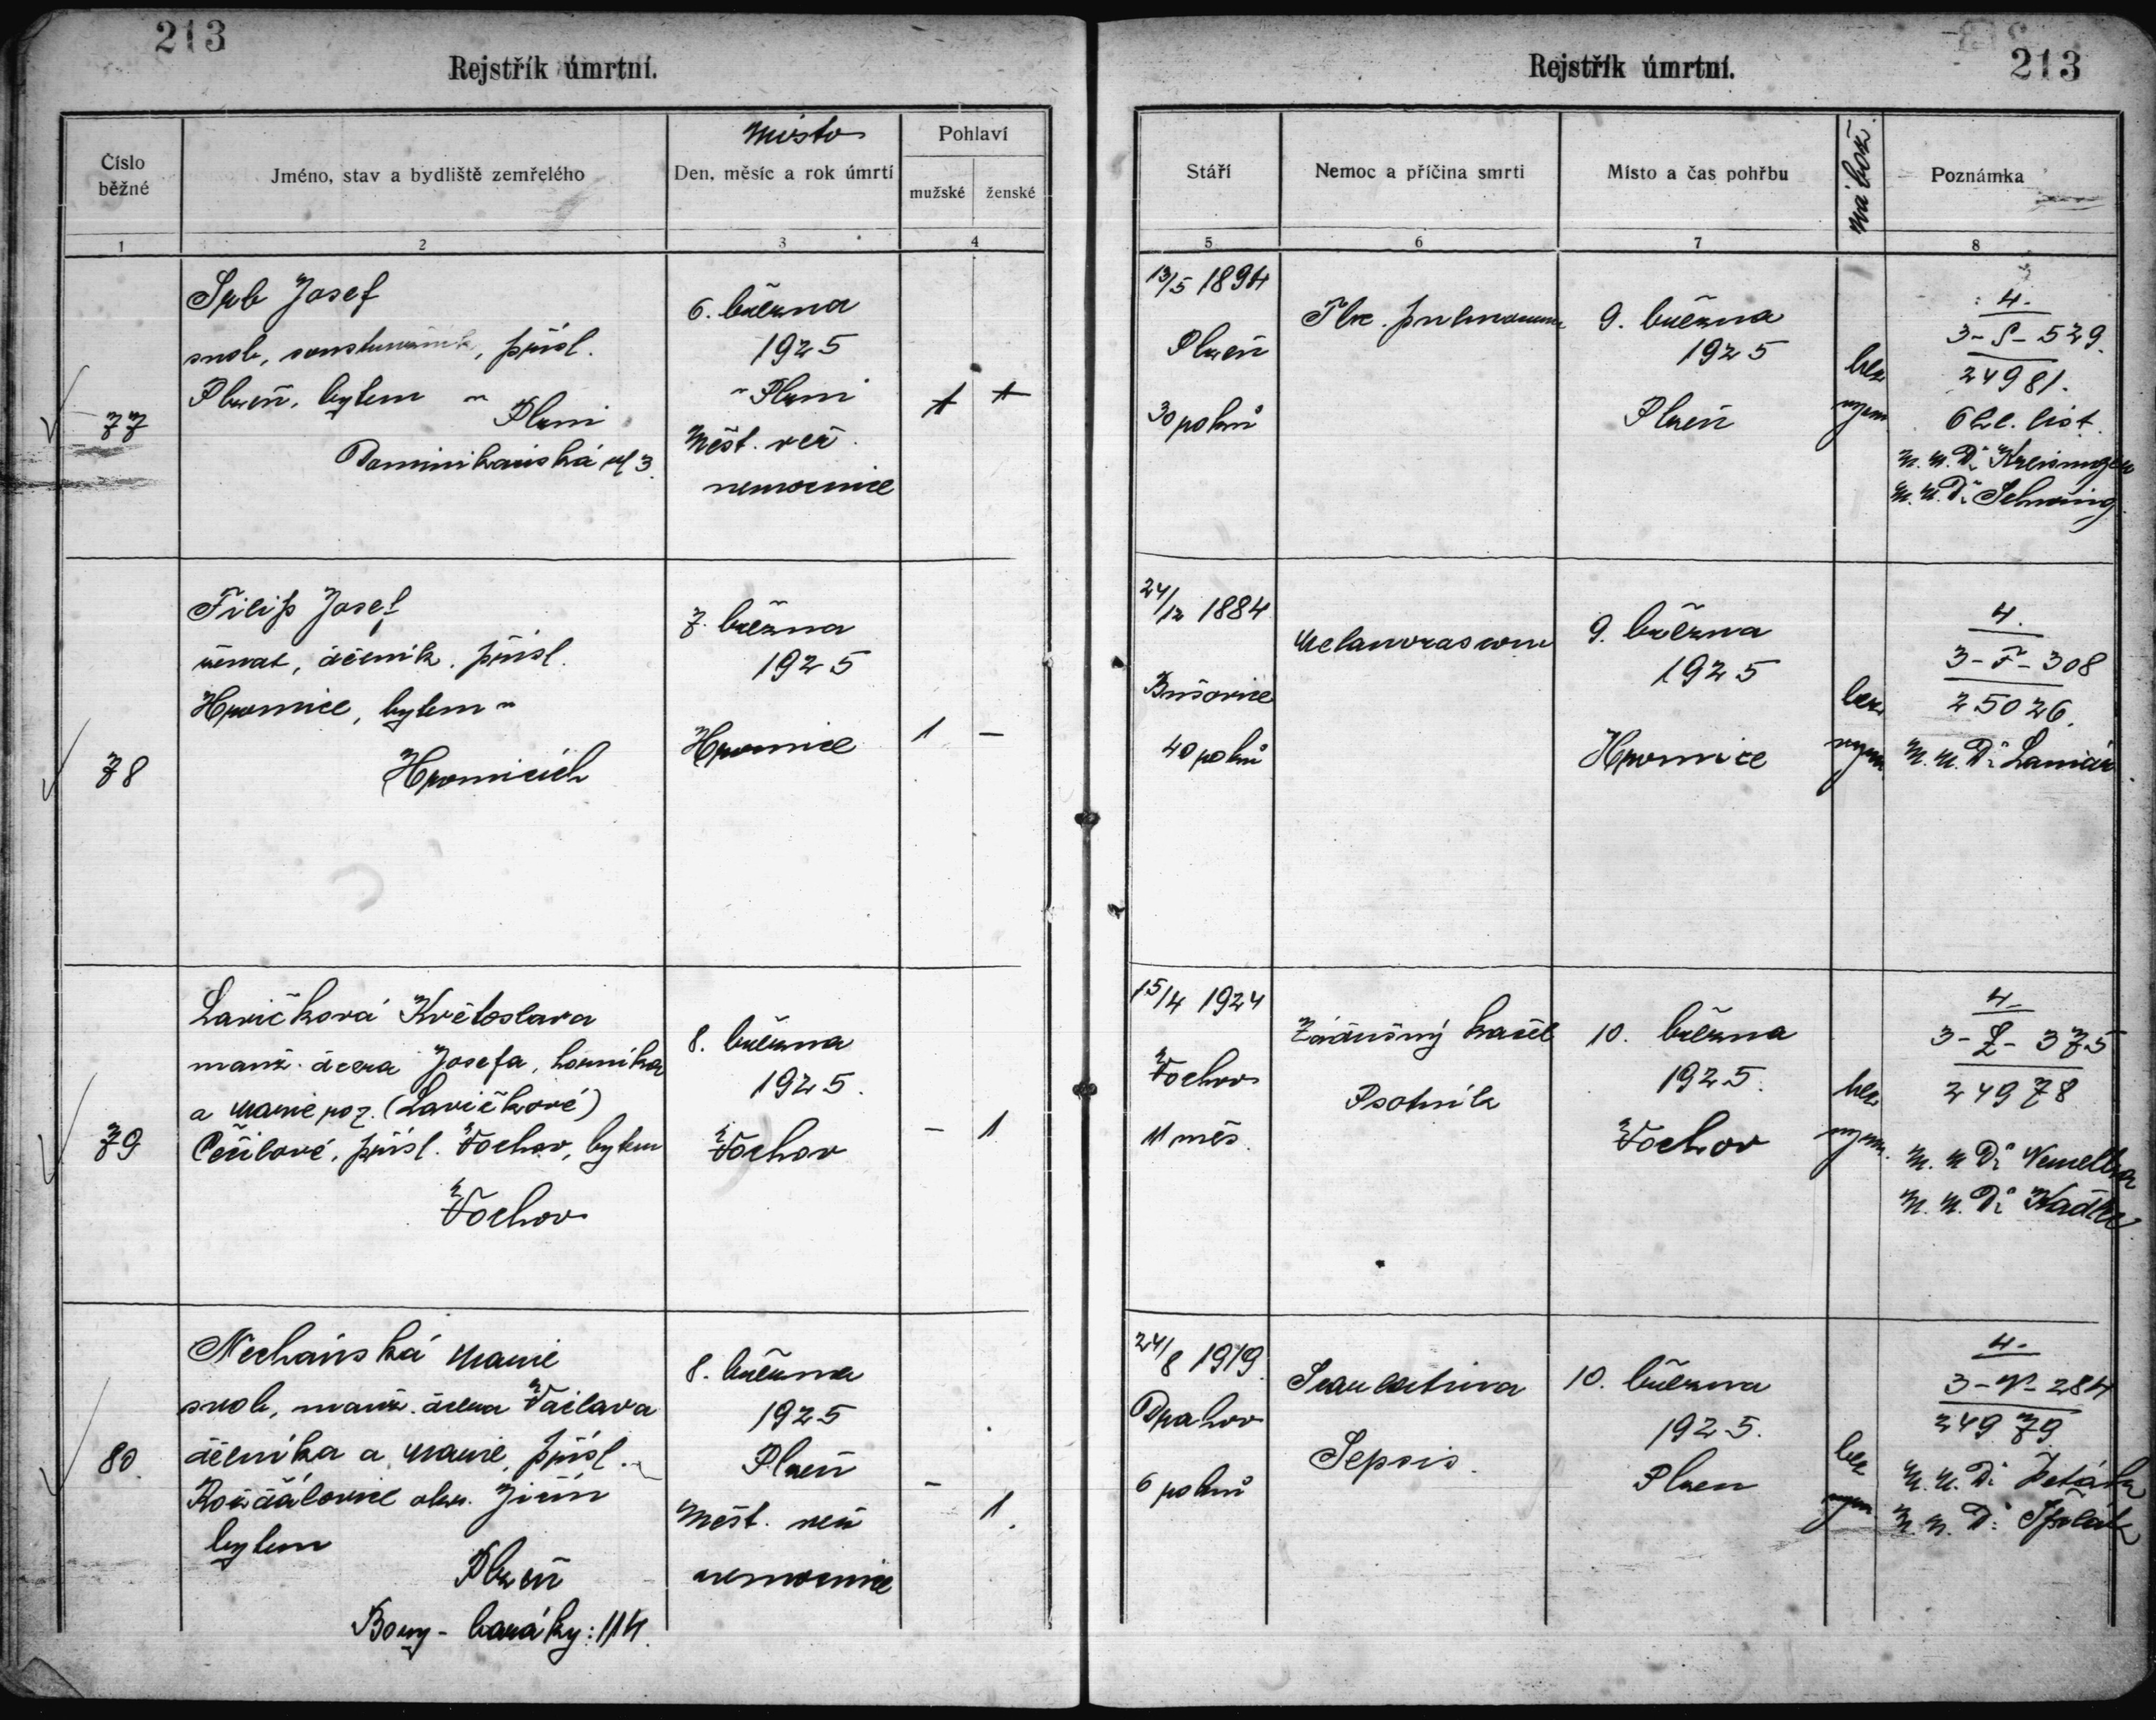 213
Rejstřík úmrtní.
Místo
Číslo běžné
Jméno, stav a bydliště zemřelého
Den, měsíc a rok úmrtí
Pohlaví
mužské
ženské
1
2
3
4
Srb Josef
svob., soustružník, přísl.
Plzeň, bytem v
Plzni
Dominikánská ul 3.
77
6. března
1925
v Plzni
Měst. veř.
nemocnice
Filip Josef
ženat, dělník. přísl.
Hromnice, bytem v
Hromnicích
78
7. března
1925
Hromnice
1
–
Lavičková Květoslava
manž. dcera Josefa, horníka
a Marie roz. (Lavičkové)
Češilové, přísl. Vochov, bytem
Vochov
79
8. března
1925.
Vochov
–
1
Nechánská Marie
svob., manž. dcera Václava
dělníka a Marie, přísl.
Rožďálovice okr. Jičín
bytem
Plzeň
Bory - baráky: 114.
80.
8. března
1925
Plzeň
Měst. veř
nemocnice
–
1.
Rejstřík úmrtní.
213
Stáří
Nemoc a příčina smrti
Místo a čas pohřbu
Nábož.
Poznámka
5
6
7
8
13/5 1894
Plzeň
30 roků
Tbc. pulmonum
9. března
1925
Plzeň
bez
vyzn.
4.
3-S-529.
24981.
Ohl. list.
M. U. Dr Kreisinger
M. U. Dr
24/12 1884
Bušovice
40 roků
Melanosarcom
9. března
1925
Hromnice
bez
vyzn
4.
3-F-308
25026.
M. U. Dr
15/4 1924
Vochov
11 měs.
Zádušný kašel
Psotník
10. března
1925.
Vochov
bez
vyzn.
4.
3-L-375
24978
M. U. Dr Nemelka
M. U. Dr Kadlec
24/8 1919
Drahov
6 roků
Scarlatina
Sepsis.
10. března
1925.
Plzen
bez
vyzn.
4.
3-N-284
24979
M. U. Dr Peták
M. U. Dr